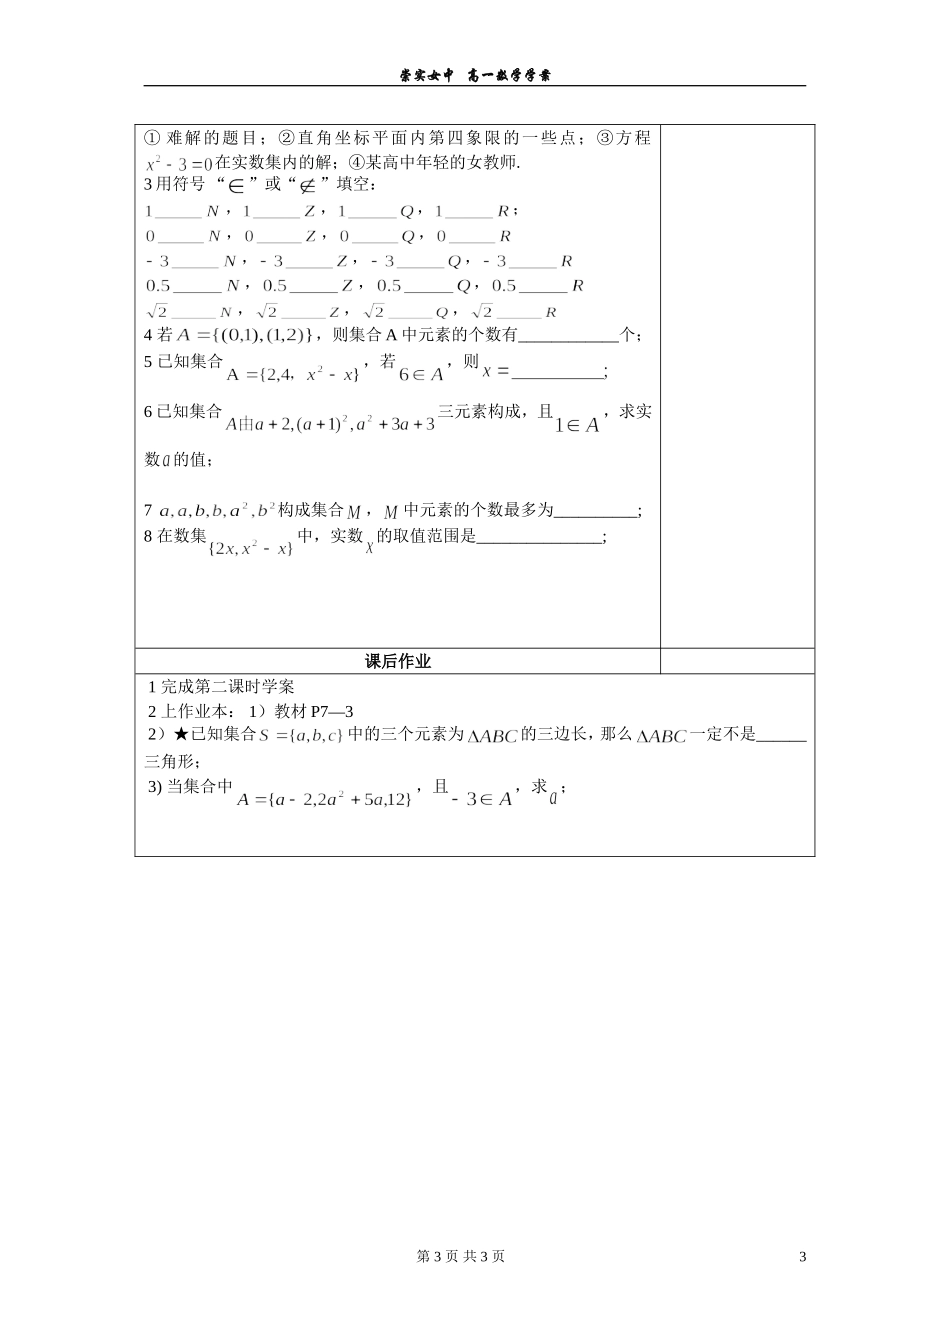 崇实女中 高一数学学案
① 难解的题目；②直角坐标平面内第四象限的一些点；③方程
x² - 3 = 0在实数集内的解；④某高中年轻的女教师.
3用符号“∈”或“∉”填空：
1______ N ，1______ Z ，1______ Q，1______ R；
0______ N ，0______ Z，0______ Q，0______ R
- 3______ N ，- 3______ Z，- 3______ Q，- 3______ R
0.5______ N ，0.5______ Z ，0.5______ Q，0.5______ R
√2______ N ，√2______ Z ，√2______ Q，√2______ R
4 若 A = {(0,1),(1,2)}，则集合 A 中元素的个数有____________个；
5 已知集合 A = {2,4，x² - x}，若 6 ∈ A，则 x = ___________;
6 已知集合 A由a + 2,(a + 1)²,a² + 3a + 3 三元素构成，且 1 ∈ A ，求实
数 a 的值；
7 a,a,b,b,a²,b² 构成集合 M ，M 中元素的个数最多为__________;
8 在数集 {2x,x² - x} 中，实数 x 的取值范围是_______________;
课后作业
1 完成第二课时学案
2 上作业本： 1）教材 P7—3
2）★已知集合 S = {a,b,c} 中的三个元素为 ΔABC 的三边长，那么 ΔABC 一定不是______
三角形；
3) 当集合中 A = {a - 2,2a² + 5a,12} ，且 - 3 ∈ A ，求 a；
第 3 页 共 3 页 3